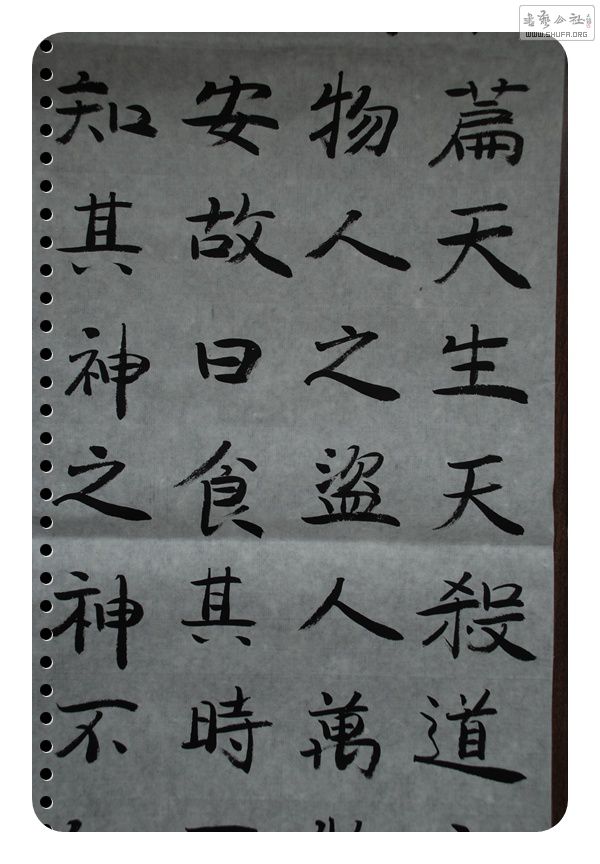 篇天生天殺道
物人之盜人萬
安故曰食其時
知其神之神不
书艺公社
WWW.SHUFA.ORG